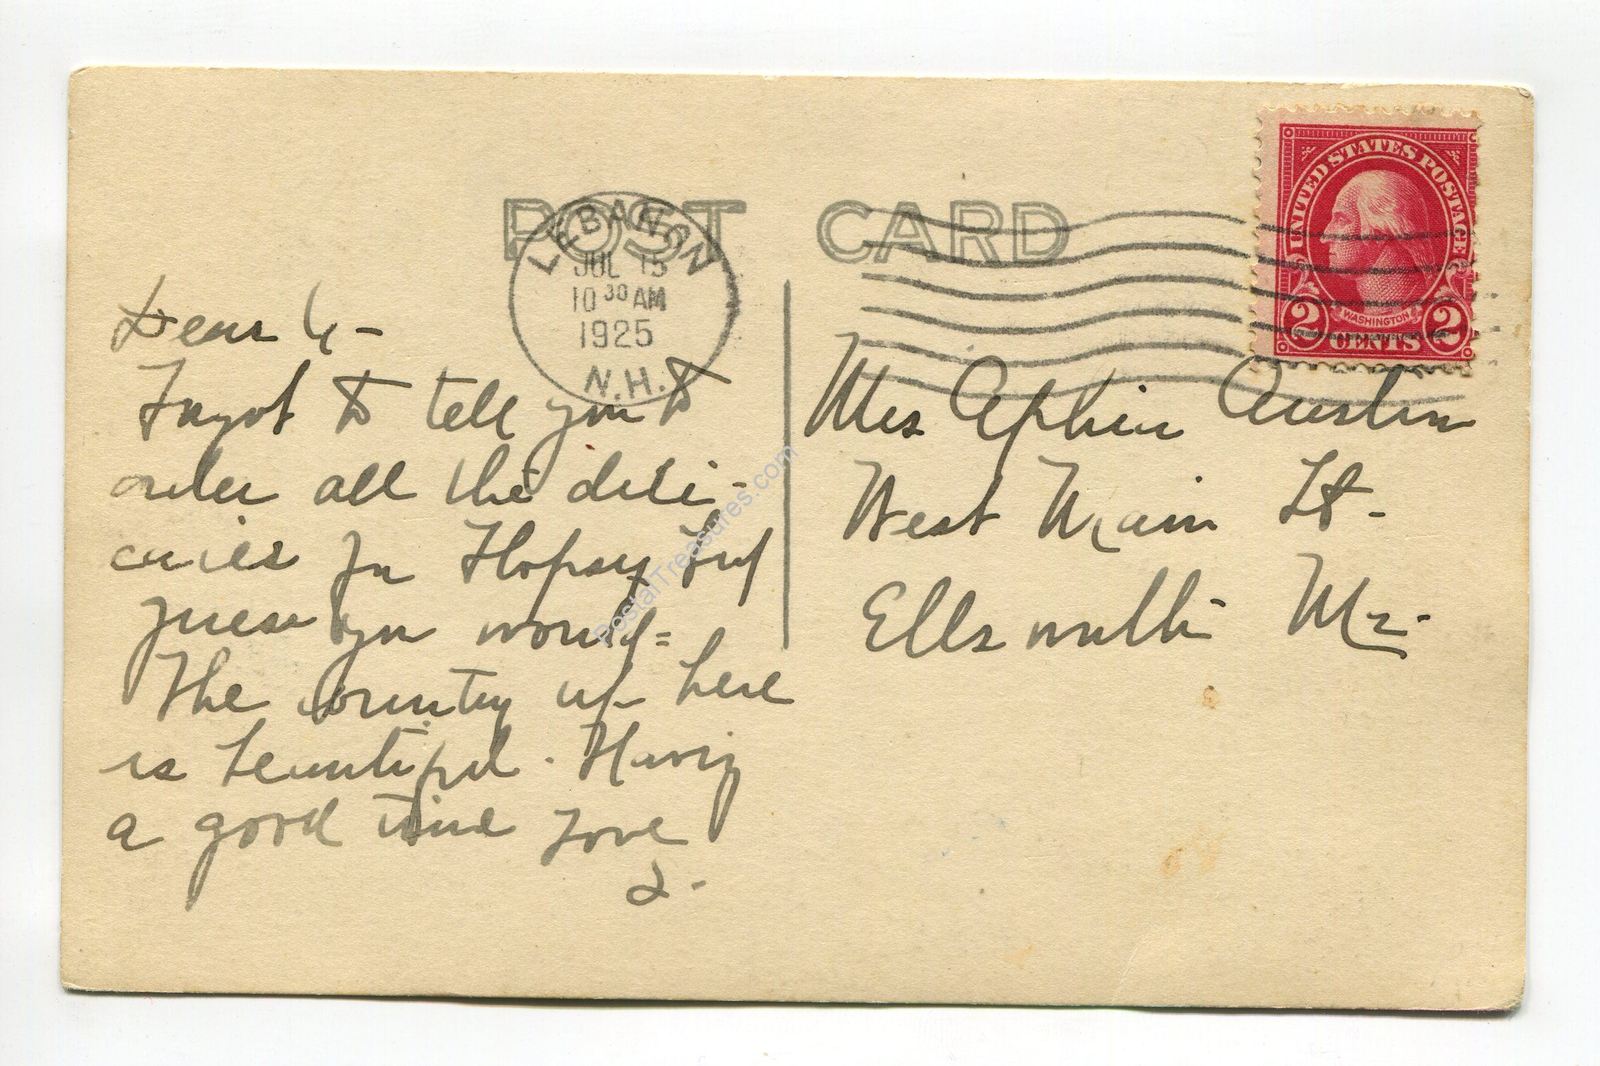 POST CARD
LEBANON
JUL 15
10 30 AM
1925
N.H.
UNITED STATES POSTAGE
WASHINGTON
2 CENTS 2
Dear
Forgot to tell you to
order all the deli-
cacies for Flopsy but
guess you would=
The country up here
is beautiful. Having
a good time Love
Mrs Austin
West Main St-
Ellsworth Me-
PostalTreasures.com